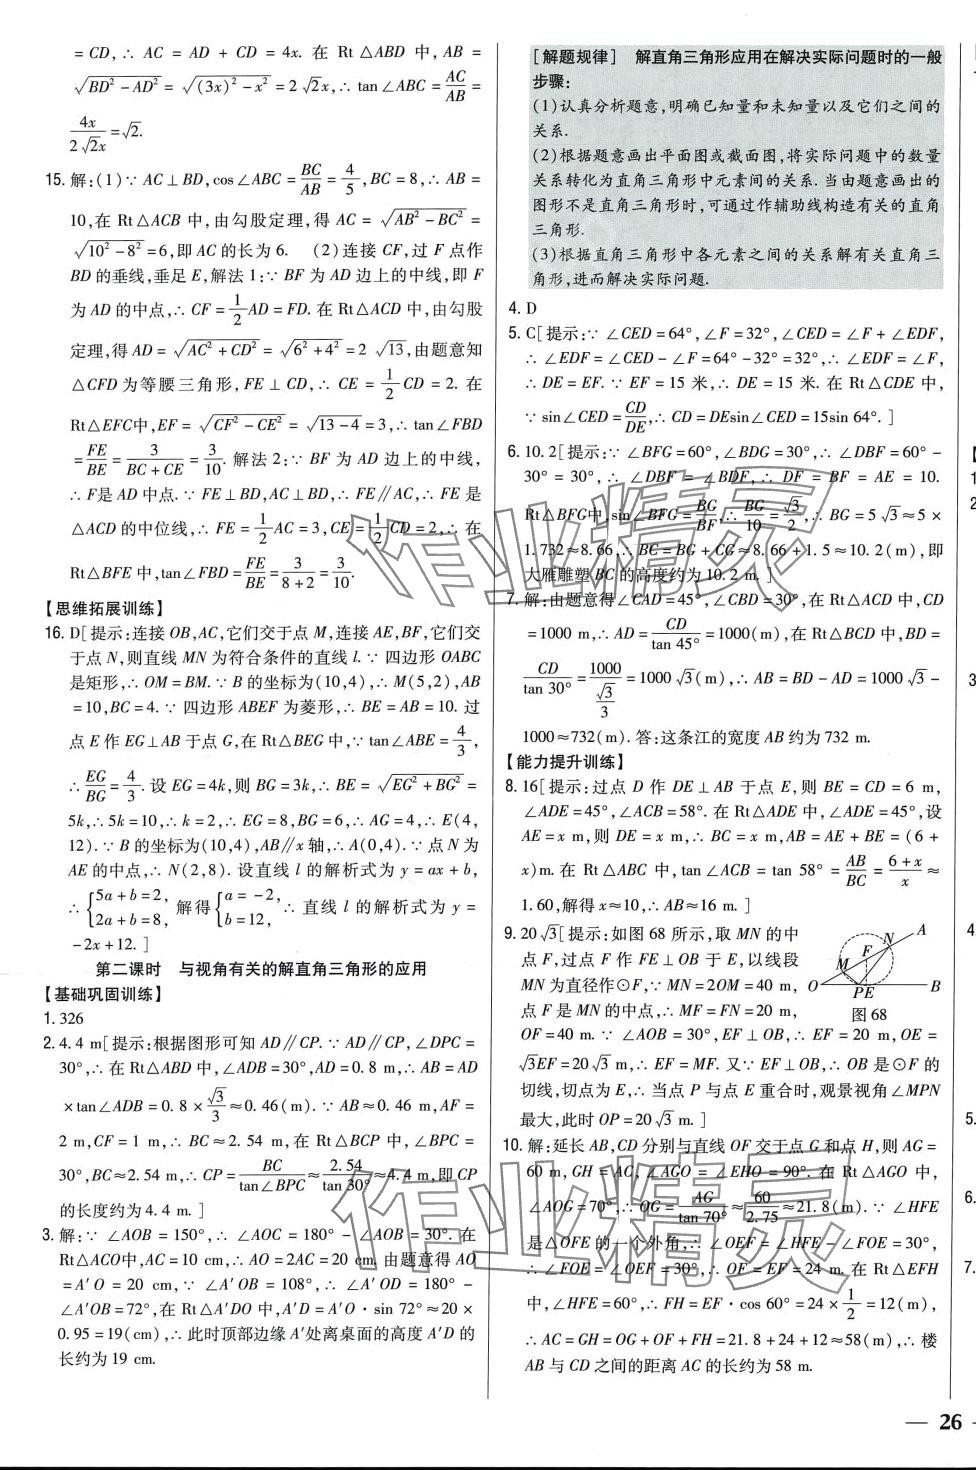 = CD, ∴ AC = AD + CD = 4x. 在 Rt△ABD 中, AB =
√(BD² − AD²) = √((3x)² − x²) = 2√2x, ∴ tan∠ABC = AC/AB =
4x/(2√2x) = √2.
15. 解:(1)∵ AC⊥BD, cos∠ABC = BC/AB = 4/5, BC = 8, ∴ AB =
10, 在 Rt△ACB 中, 由勾股定理, 得 AC = √(AB² − BC²) =
√(10² − 8²) = 6, 即 AC 的长为 6. (2)连接 CF, 过 F 点作
BD 的垂线, 垂足 E, 解法 1:∵ BF 为 AD 边上的中线, 即 F
为 AD 的中点, ∴ CF = 1/2 AD = FD. 在 Rt△ACD 中, 由勾股
定理, 得 AD = √(AC² + CD²) = √(6² + 4²) = 2√13, 由题意知
△CFD 为等腰三角形, FE⊥CD, ∴ CE = 1/2 CD = 2. 在
Rt△EFC中, EF = √(CF² − CE²) = √(13 − 4) = 3, ∴ tan∠FBD
= FE/BE = 3/(BC + CE) = 3/10. 解法 2:∵ BF 为 AD 边上的中线,
∴ F是 AD 中点. ∵ FE⊥BD, AC⊥BD, ∴ FE∥AC, ∴ FE 是
△ACD 的中位线, ∴ FE = 1/2 AC = 3, CE = 1/2 CD = 2, ∴ 在
Rt△BFE 中, tan∠FBD = FE/BE = 3/(8+2) = 3/10.
【思维拓展训练】
16. D[提示:连接 OB, AC, 它们交于点 M, 连接 AE, BF, 它们交
于点 N, 则直线 MN 为符合条件的直线 l. ∵ 四边形 OABC
是矩形, ∴ OM = BM. ∵ B 的坐标为(10,4), ∴ M(5,2), AB
= 10, BC = 4. ∵ 四边形 ABEF 为菱形, ∴ BE = AB = 10. 过
点 E 作 EG⊥AB 于点 G, 在 Rt△BEG 中, ∵ tan∠ABE = 4/3,
∴ EG/BG = 4/3. 设 EG = 4k, 则 BG = 3k, ∴ BE = √(EG² + BG²) =
5k, ∴ 5k = 10, ∴ k = 2, ∴ EG = 8, BG = 6, ∴ AG = 4, ∴ E(4,
12). ∵ B 的坐标为(10,4), AB∥x 轴, ∴ A(0,4). ∵ 点 N 为
AE 的中点, ∴ N(2,8). 设直线 l 的解析式为 y = ax + b,
∴ {5a + b = 2, 2a + b = 8, 解得 {a = −2, b = 12, ∴ 直线 l 的解析式为 y =
−2x + 12. ]
第二课时 与视角有关的解直角三角形的应用
【基础巩固训练】
1. 326
2. 4.4 m[提示:根据图形可知 AD∥CP. ∵ AD∥CP, ∠DPC =
30°, ∴ 在 Rt△ABD 中, ∠ADB = 30°, AD = 0.8 m, ∴ AB = AD
×tan∠ADB = 0.8 × √3/3 ≈ 0.46(m). ∵ AB ≈ 0.46 m, AF =
2 m, CF = 1 m, ∴ BC ≈ 2.54 m, ∴ 在 Rt△BCP 中, ∠BPC =
30°, BC ≈ 2.54 m, ∴ CP = BC/tan∠BPC ≈ 2.54/tan30° ≈ 4.4 m. 即 CP
的长度约为 4.4 m. ]
3. 解:∵ ∠AOB = 150°, ∴ ∠AOC = 180° − ∠AOB = 30°. 在
Rt△ACO中, AC = 10 cm, ∴ AO = 2AC = 20 cm. 由题意得 AO
= A′O = 20 cm, ∵ ∠A′OB = 108°, ∴ ∠A′OD = 180° −
∠A′OB = 72°, 在 Rt△A′DO 中, A′D = A′O · sin 72° ≈ 20 ×
0.95 = 19(cm), ∴ 此时顶部边缘 A′处离桌面的高度 A′D 的
长约为 19 cm.
[解题规律] 解直角三角形应用在解决实际问题时的一般
步骤:
(1)认真分析题意, 明确已知量和未知量以及它们之间的
关系.
(2)根据题意画出平面图或截面图, 将实际问题中的数量
关系转化为直角三角形中元素间的关系. 当由题意画出的
图形不是直角三角形时, 可通过作辅助线构造有关的直角
三角形.
(3)根据直角三角形中各元素之间的关系解有关直角三
角形, 进而解决实际问题.
4. D
5. C[提示:∵ ∠CED = 64°, ∠F = 32°, ∠CED = ∠F + ∠EDF,
∴ ∠EDF = ∠CED − ∠F = 64° − 32° = 32°, ∴ ∠EDF = ∠F,
∴ DE = EF. ∵ EF = 15 米, ∴ DE = 15 米. 在 Rt△CDE 中,
∵ sin∠CED = CD/DE, ∴ CD = DEsin∠CED = 15sin 64°. ]
6. 10.2[提示:∵ ∠BFG = 60°, ∠BDG = 30°, ∴ ∠DBF = 60° −
30° = 30°, ∴ ∠DBF = ∠BDF, ∴ DF = BF = AE = 10.
Rt△BFG中, sin∠BFG = BG/BF, ∴ BG/10 = √3/2, ∴ BG = 5√3 ≈ 5 ×
1.732 ≈ 8.66, ∴ BC = BG + CG ≈ 8.66 + 1.5 ≈ 10.2(m), 即
大雁雕塑 BC 的高度约为 10.2 m. ]
7. 解:由题意得∠CAD = 45°, ∠CBD = 30°, 在 Rt△ACD 中, CD
= 1000 m, ∴ AD = CD/tan 45° = 1000(m), 在 Rt△BCD 中, BD =
CD/tan 30° = 1000/(√3/3) = 1000√3(m), ∴ AB = BD − AD = 1000√3 −
1000 ≈ 732(m). 答:这条江的宽度 AB 约为 732 m.
【能力提升训练】
8. 16[提示:过点 D 作 DE⊥AB 于点 E, 则 BE = CD = 6 m,
∠ADE = 45°, ∠ACB = 58°. 在 Rt△ADE 中, ∠ADE = 45°, 设
AE = x m, 则 DE = x m, ∴ BC = x m, AB = AE + BE = (6 +
x)m. 在 Rt△ABC 中, tan∠ACB = tan 58° = AB/BC = (6 + x)/x ≈
1.60, 解得 x ≈ 10, ∴ AB ≈ 16 m. ]
9. 20√3[提示:如图 68 所示, 取 MN 的中
点 F, 过点 F 作 FE⊥OB 于 E, 以线段
MN 为直径作⊙F, ∵ MN = 2OM = 40 m,
点 F 是 MN 的中点, ∴ MF = FN = 20 m,
A
N
F
M
O
P E
B
图 68
OF = 40 m. ∵ ∠AOB = 30°, EF⊥OB, ∴ EF = 20 m, OE =
√3EF = 20√3 m, ∴ EF = MF. 又∵ EF⊥OB, ∴ OB 是⊙F 的
切线, 切点为 E, ∴ 当点 P 与点 E 重合时, 观景视角∠MPN
最大, 此时 OP = 20√3 m. ]
10. 解:延长 AB, CD 分别与直线 OF 交于点 G 和点 H, 则 AG =
60 m, GH = AC, ∠AGO = ∠EHO = 90°. 在 Rt△AGO 中,
∠AOG = 70°, ∴ OG = AG/tan 70° ≈ 60/2.75 ≈ 21.8(m). ∵ ∠HFE
是△OFE 的一个外角, ∴ ∠OEF = ∠HFE − ∠FOE = 30°,
∴ ∠FOE = ∠OEF = 30°, ∴ OF = EF = 24 m. 在 Rt△EFH
中, ∠HFE = 60°, ∴ FH = EF · cos 60° = 24 × 1/2 = 12(m),
∴ AC = GH = OG + OF + FH = 21.8 + 24 + 12 ≈ 58(m), ∴ 楼
AB 与 CD 之间的距离 AC 的长约为 58 m.
作业精灵
作业精灵
— 26 —